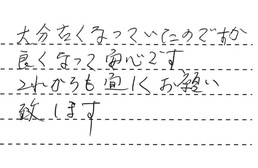 大分古くなっていたのですが
良くなって安心です
これからも宜しくお願い
致します